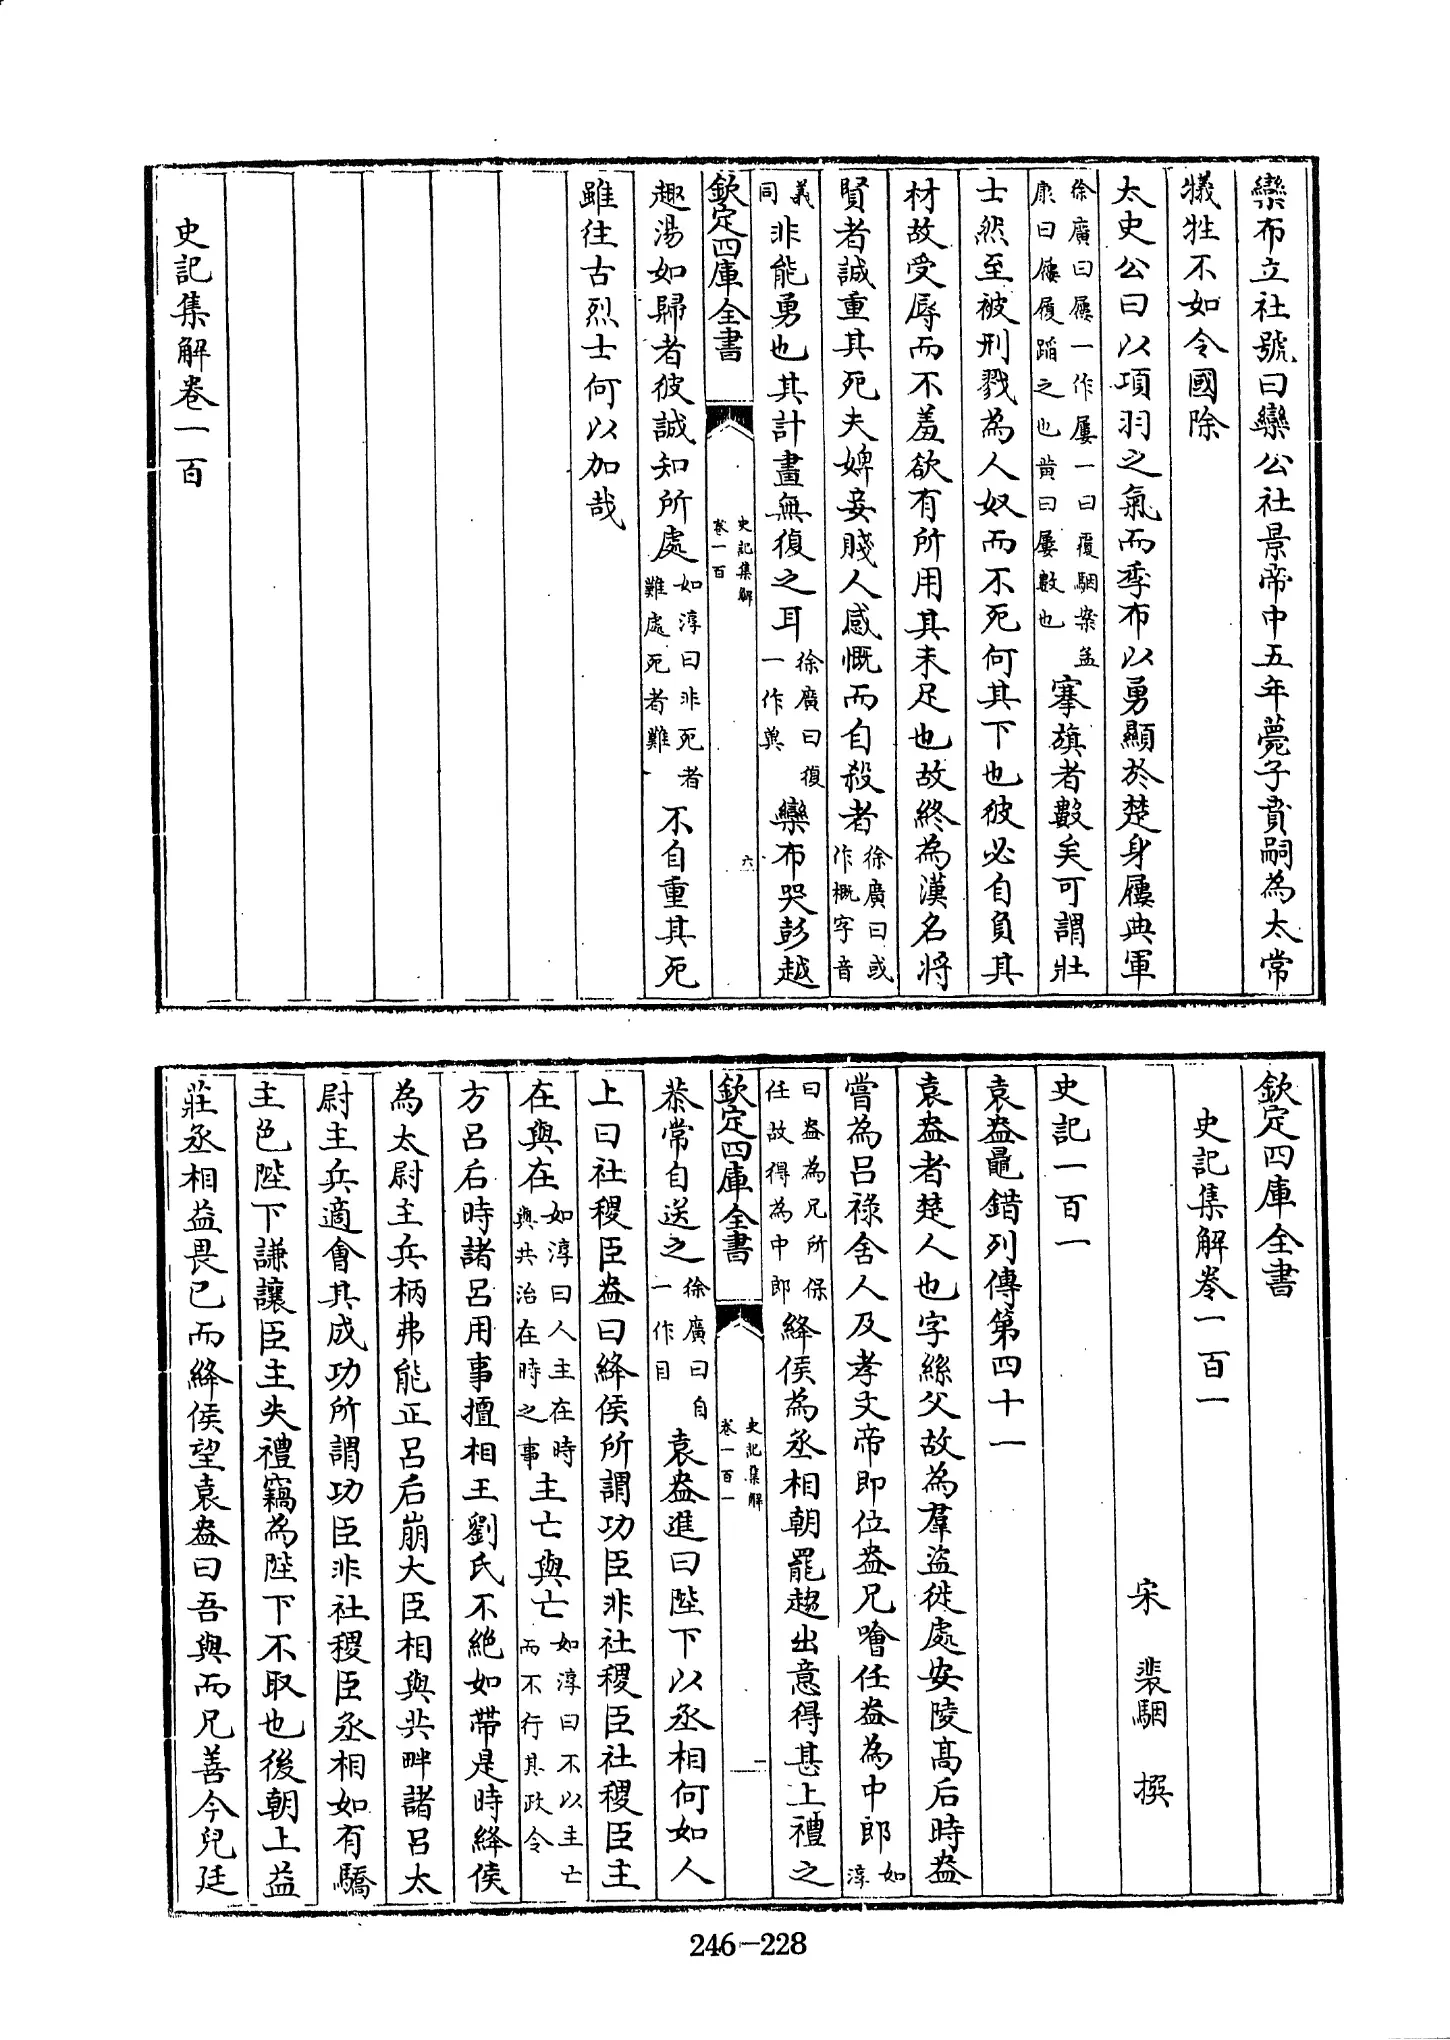 欒布立社號曰欒公社景帝中五年薨子賁嗣為太常
犧牲不如令國除
太史公曰以項羽之氣而季布以勇顯於楚身屨典軍
徐廣曰屨一作屢一曰覆駰案孟
康曰屨履蹈之也瓚曰屢數也
搴旗者數矣可謂壯
士然至被刑戮為人奴而不死何其下也彼必自負其
材故受辱而不羞欲有所用其未足也故終為漢名將
賢者誠重其死夫婢妾賤人感慨而自殺者
徐廣曰或
作概字音
義
同
非能勇也其計畫無復之耳
徐廣曰復
一作奠
欒布哭彭越
欽定四庫全書
史記集解
卷一百
六
趣湯如歸者彼誠知所處
如淳曰非死者
難處死者難
不自重其死
雖往古烈士何以加哉
史記集解卷一百
欽定四庫全書
史記集解卷一百一
宋 裴駰 撰
史記一百一
袁盎鼂錯列傳第四十一
袁盎者楚人也字絲父故為羣盜徙處安陵高后時盎
嘗為呂祿舍人及孝文帝即位盎兄噲任盎為中郎
如
淳
曰盎為兄所保
任故得為中郎
絳侯為丞相朝罷趨出意得甚上禮之
欽定四庫全書
史記集解
卷一百一
一
恭常自送之
徐廣曰自
一作目
袁盎進曰陛下以丞相何如人
上曰社稷臣盎曰絳侯所謂功臣非社稷臣社稷臣主
在與在
如淳曰人主在時
與共治在時之事
主亡與亡
如淳曰不以主亡
而不行其政令
方呂后時諸呂用事擅相王劉氏不絕如帶是時絳侯
為太尉主兵柄弗能正呂后崩大臣相與共畔諸呂太
尉主兵適會其成功所謂功臣非社稷臣丞相如有驕
主色陛下謙讓臣主失禮竊為陛下不取也後朝上益
莊丞相益畏已而絳侯望袁盎曰吾與而兄善今兒廷
246-228